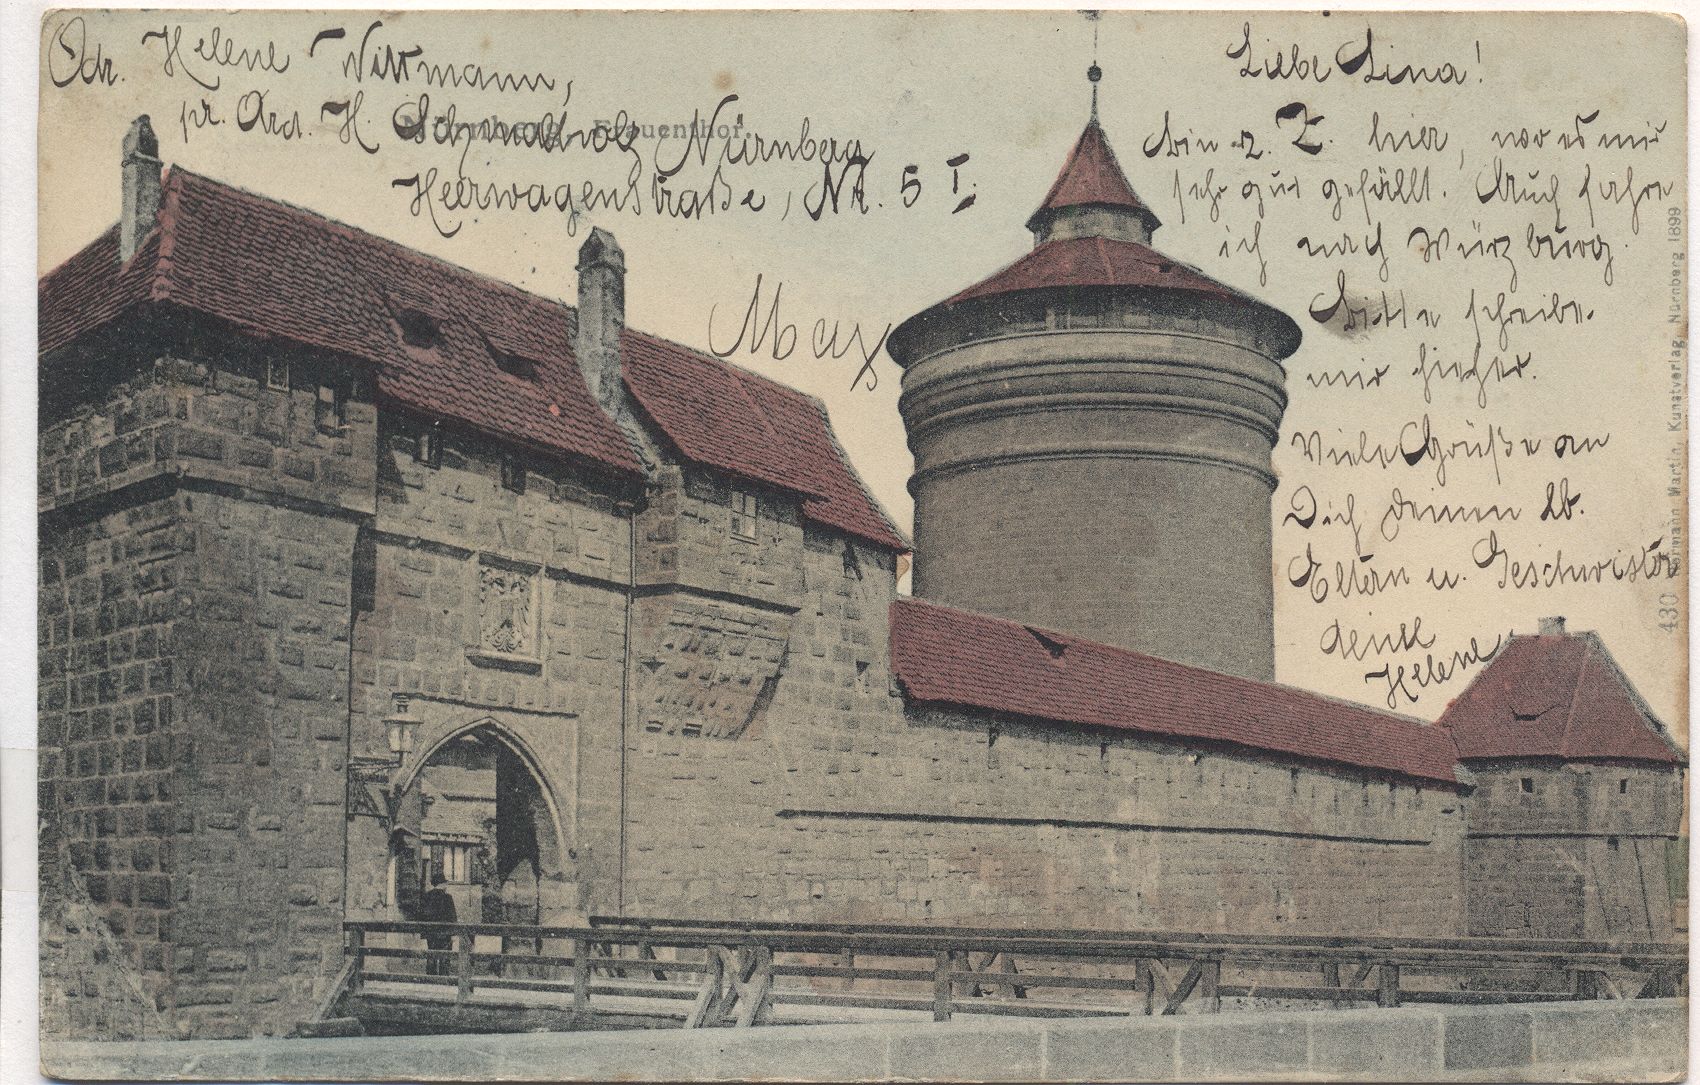 Adr. Helene Wittmann,
pr. Adr. H. Schmalholz Nürnberg
Heerwagenstraße, Nr. 5 I.
Nürnberg. Frauenthor.
Liebe Lina!
Bin z. Z. hier, wo es mir
sehr gut gefällt. Auch fahre
ich nach Würzburg.
Bitte schreibe
mir hieher.
Viele Grüße an
Dich deinen lb.
Eltern u. Geschwister
Helene
430 Hermann Martin, Kunstverlag, Nürnberg 1899